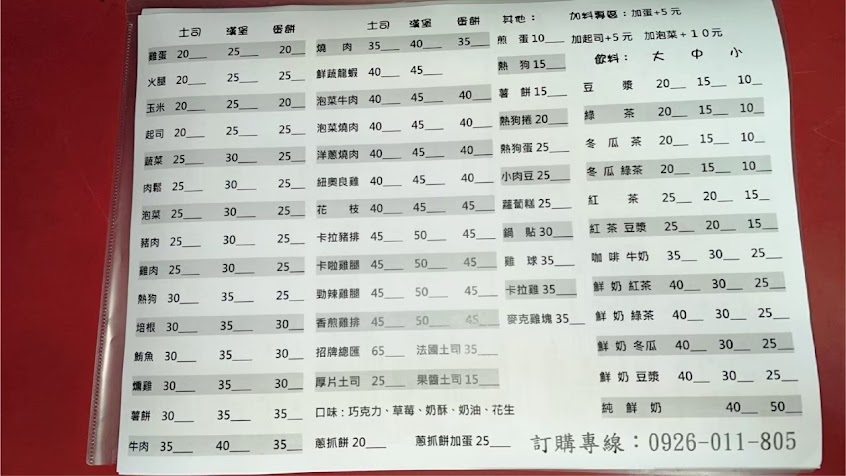 土司 漢堡 蛋餅
雞蛋 20 25 20
火腿 20 25 25
玉米 20 25 20
起司 20 25 25
蔬菜 25 30 25
肉鬆 25 30 25
泡菜 25 30 25
豬肉 25 30 25
雞肉 25 30 25
熱狗 30 35 25
培根 30 35 30
鮪魚 30 35 30
燻雞 30 35 30
薯餅 30 35 30
牛肉 35 40 35
土司 漢堡 蛋餅
燒肉 35 40 35
鮮蔬龍蝦 40 45
泡菜牛肉 40 45 40
泡菜燒肉 40 45 40
洋蔥燒肉 40 45 40
紐奧良雞 40 45 40
花枝 40 45 40
卡拉豬排 45 50 45
卡啦雞腿 45 50 45
勁辣雞腿 45 50 45
香煎雞排 45 50 45
招牌總匯 65 法國土司 35
厚片土司 25 果醬土司 15
口味:巧克力、草莓、奶酥、奶油、花生
蔥抓餅 20 蔥抓餅加蛋 25
其他:
煎蛋 10
熱狗 15
薯餅 15
熱狗捲 20
熱狗蛋 25
小肉豆 25
蘿蔔糕 25
鍋貼 30
雞球 35
卡拉雞 35
麥克雞塊 35
加料專區:加蛋+5元
加起司+5元 加泡菜+10元
飲料: 大 中 小
豆漿 20 15 10
綠茶 20 15 10
冬瓜茶 20 15 10
冬瓜綠茶 20 15 10
紅茶 25 20 15
紅茶豆漿 25 20 15
咖啡牛奶 35 30 25
鮮奶紅茶 40 30 25
鮮奶綠茶 40 30 25
鮮奶冬瓜 40 30 25
鮮奶豆漿 40 30 25
純鮮奶 40 50
訂購專線:0926-011-805